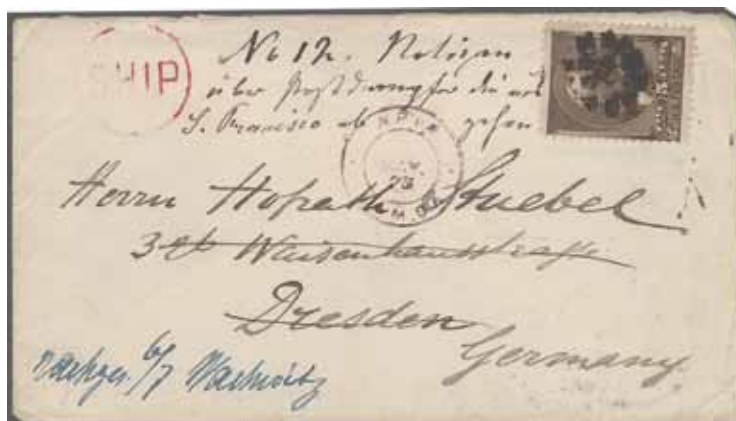 SHIP
No 12. Notizen
über Postdampfer die aus
S. Francisco ab gehen
APIA
73
Herrn Hofrath Stuebel
Waisenhausstraße
Dresden
Germany
nachges. 6/7 Wachwitz